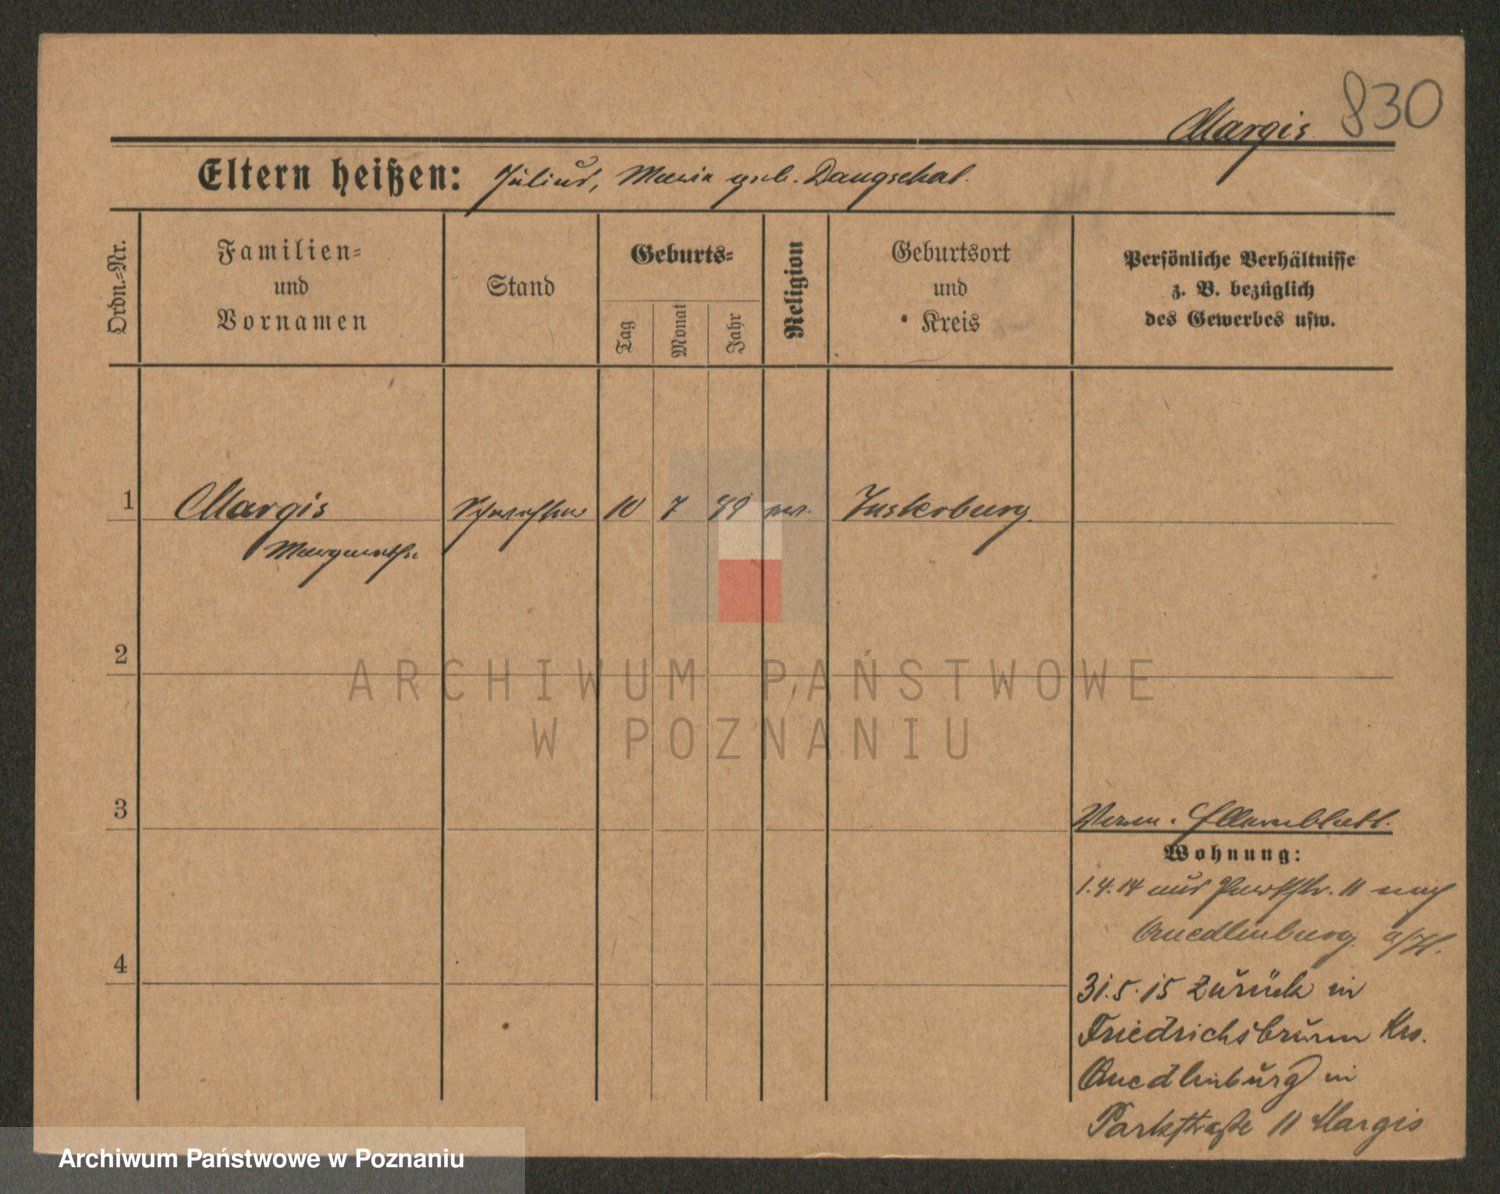 830
Margis
Eltern heißen: Julius, Maria geb. Dangschat.
Ordn.=Nr.
Familien=
und
Vornamen
Stand
Geburts=
Tag
Monat
Jahr
Religion
Geburtsort
und
Kreis
Persönliche Verhältnisse
z. B. bezüglich
des Gewerbes usw.
1 Margis 10 7 89 Insterburg.
Margarethe
2
3
Elternblatt.
Wohnung:
1.4.14 aus Parkstr. 11 nach
Quedlinburg a/H.
4
31.5.15 zurück in
Friedrichsbrunn Krs.
Quedlinburg in
Parkstraße 11 Margis
ARCHIWUM PAŃSTWOWE
W POZNANIU
Archiwum Państwowe w Poznaniu